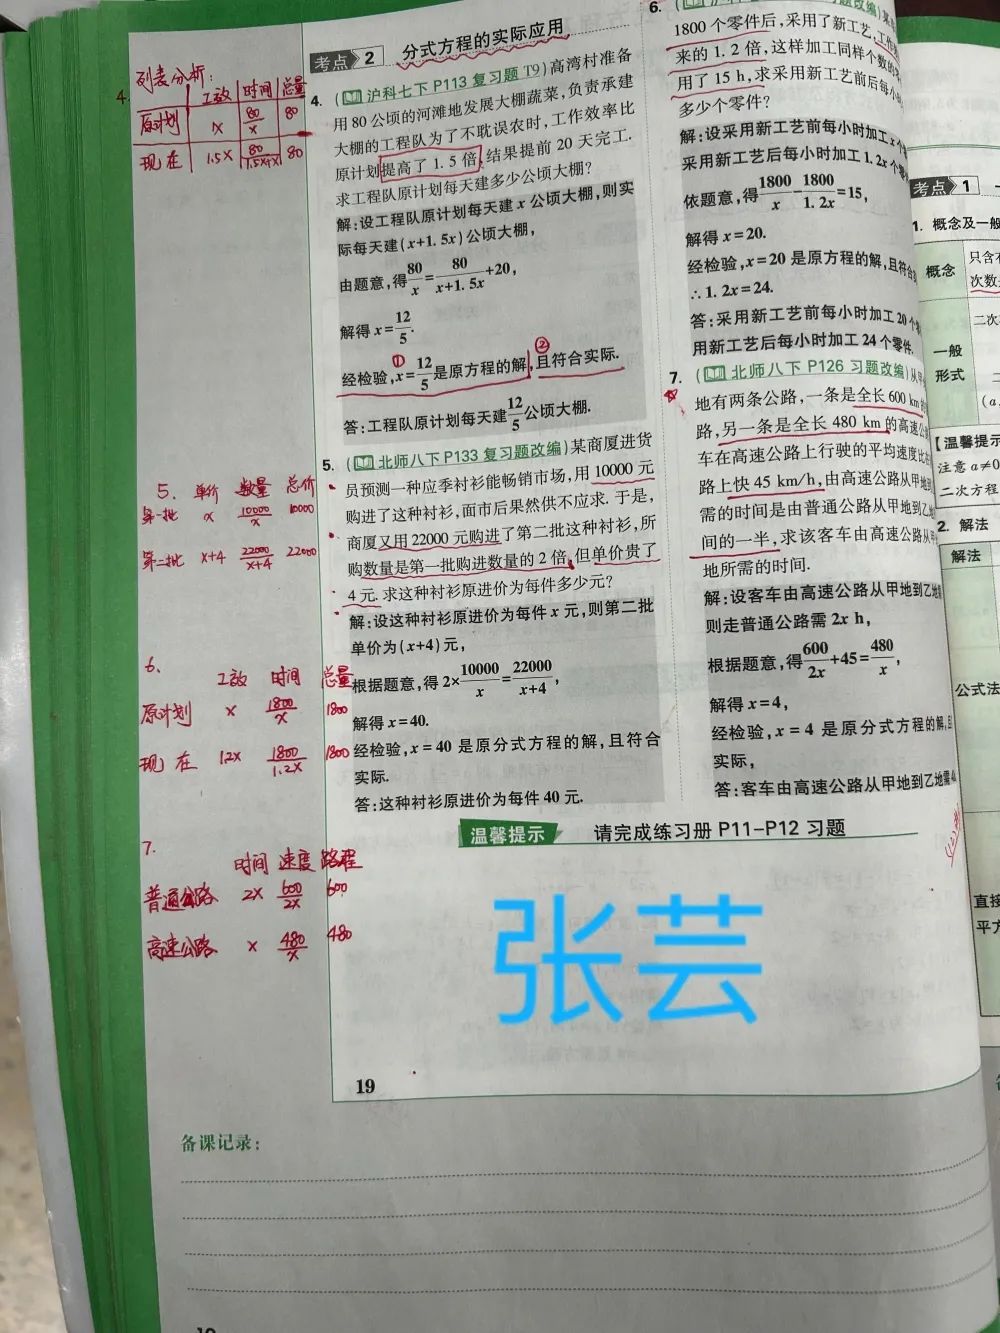 列表分析:
4.
工效 时间 总量
原计划 x 80/x 80
现在 1.5x 80/1.5x+x 80
5. 单价 数量 总价
第一批 x 10000/x 10000
第二批 x+4 22000/x+4 22000
6.
工效 时间 总量
原计划 x 1800/x 1800
现在 1.2x 1800/1.2x 1800
7.
时间 速度 路程
普通公路 2x 600/2x 600
高速公路 x 480/x 480
考点 2 分式方程的实际应用
4. (沪科七下 P113 复习题 T9)高湾村准备
用 80 公顷的河滩地发展大棚蔬菜,负责承建
大棚的工程队为了不耽误农时,工作效率比
原计划提高了 1. 5 倍,结果提前 20 天完工.
求工程队原计划每天建多少公顷大棚?
解:设工程队原计划每天建 x 公顷大棚,则实
际每天建(x+1. 5x)公顷大棚,
由题意,得80/x=80/x+1. 5x+20,
解得 x=12/5.
① ②
经检验,x=12/5是原方程的解,且符合实际.
答:工程队原计划每天建12/5公顷大棚.
5. (北师八下 P133 复习题改编)某商厦进货
员预测一种应季衬衫能畅销市场,用 10000 元
购进了这种衬衫,面市后果然供不应求. 于是,
商厦又用 22000 元购进了第二批这种衬衫,所
购数量是第一批购进数量的 2 倍,但单价贵了
4 元. 求这种衬衫原进价为每件多少元?
解:设这种衬衫原进价为每件 x 元,则第二批
单价为(x+4)元,
根据题意,得 2×10000/x=22000/x+4,
解得 x=40.
经检验,x=40 是原分式方程的解,且符合
实际.
答:这种衬衫原进价为每件 40 元.
6.
1800 个零件后,采用了新工艺,工作
来的 1. 2 倍,这样加工同样个数的
用了 15 h,求采用新工艺前后每小
多少个零件?
解:设采用新工艺前每小时加工 x 个
采用新工艺后每小时加工 1. 2x 个
依题意,得1800/x-1800/1. 2x=15,
解得 x=20.
经检验,x=20 是原方程的解,且符合
∴1. 2x=24.
答:采用新工艺前每小时加工 20 个
用新工艺后每小时加工 24 个零件.
7. (北师八下 P126 习题改编)从甲
地有两条公路,一条是全长 600 km
路,另一条是全长 480 km 的高速公
车在高速公路上行驶的平均速度比在
路上快 45 km/h,由高速公路从甲地到乙
需的时间是由普通公路从甲地到乙地
间的一半,求该客车由高速公路从甲
地所需的时间.
解:设客车由高速公路从甲地到乙地
则走普通公路需 2x h,
根据题意,得600/2x+45=480/x,
解得 x=4,
经检验,x=4 是原分式方程的解,且
实际,
答:客车由高速公路从甲地到乙地需
温馨提示 请完成练习册 P11-P12 习题
张芸
19
备课记录:
考点 1
1. 概念及一般
概念
只含有
次数
一般
形式
二次
(a
【温馨提示
注意 a≠0
二次方程
2. 解法
解法
公式法
直接
平方